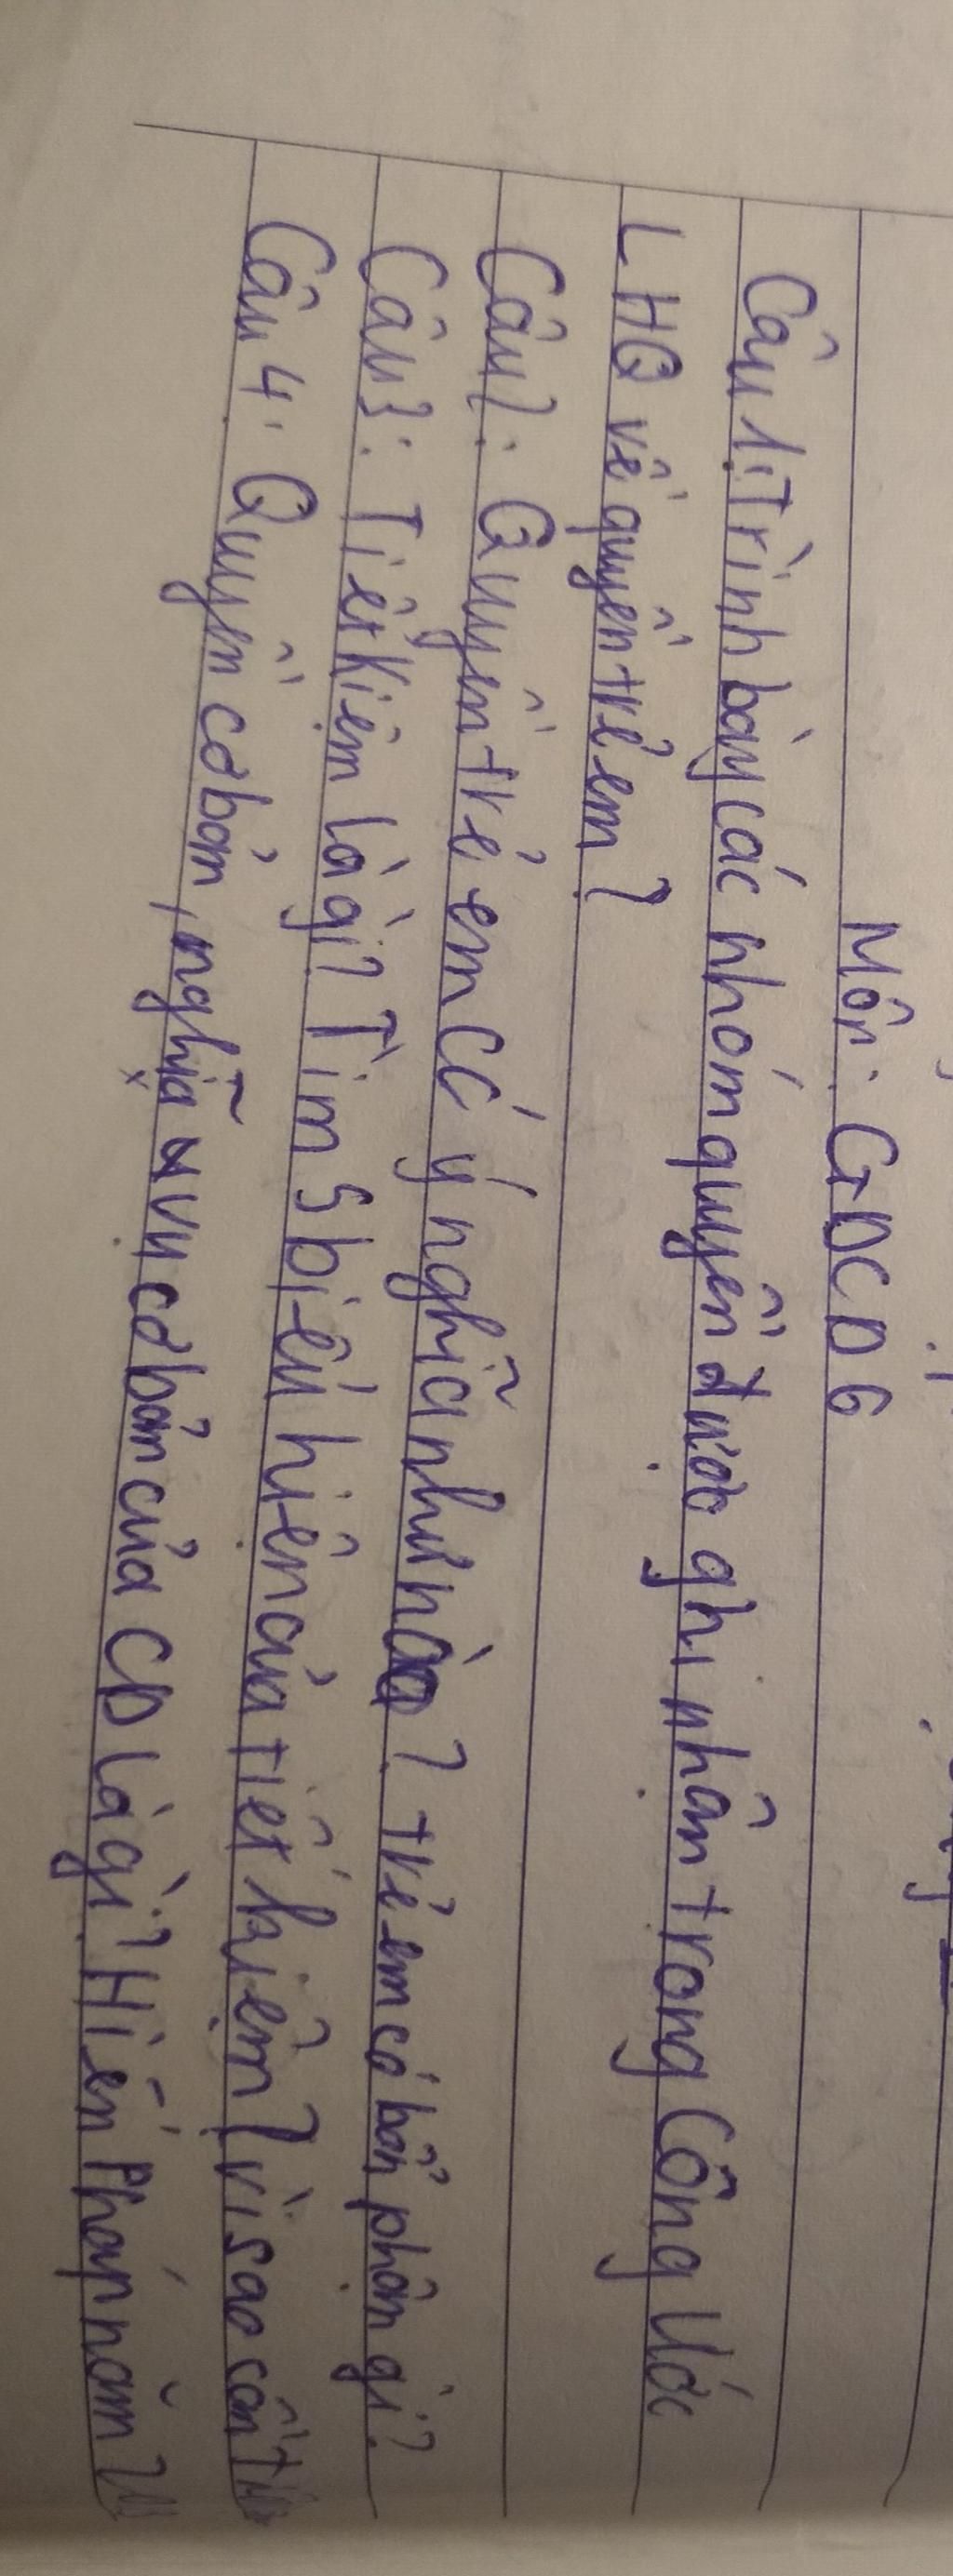 Môn: GDCD 6
Câu 1: Trình bày các nhóm quyền được ghi nhận trong Công Ước
LHQ về quyền trẻ em?
Câu 2: Quyền trẻ em có ý nghĩa như nào? trẻ em có bổn phận gì?
Câu 3: Tiết kiệm là gì? Tìm 5 biểu hiện của tiết kiệm? vì sao cần
Câu 4: Quyền cơ bản, nghĩa vụ cơ bản của CD là gì? Hiến Pháp năm